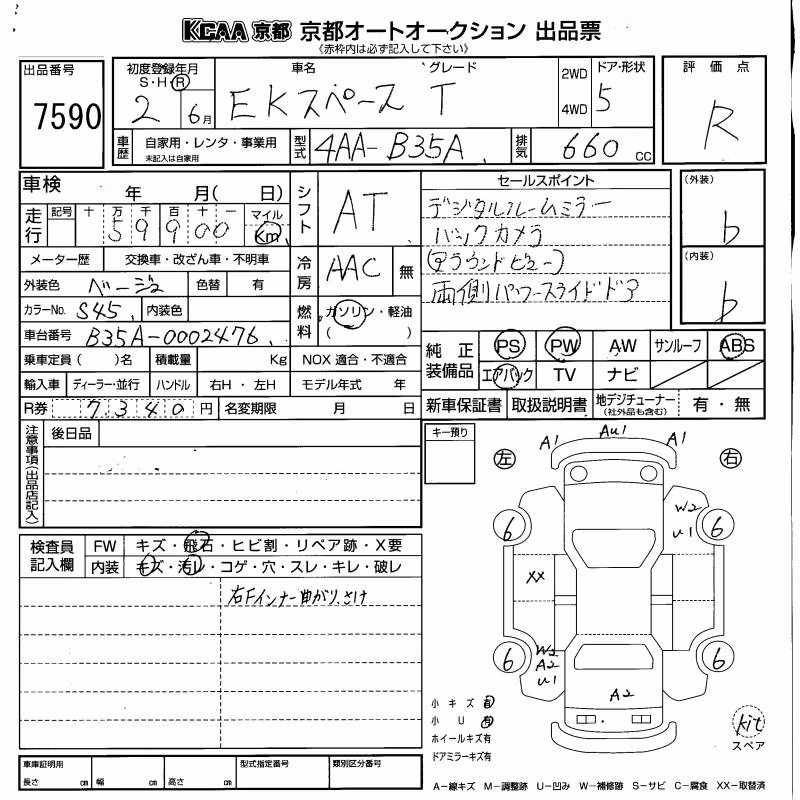 KCAA 京都 京都オートオークション 出品票
《赤枠内は必ず記入して下さい》
出品番号 初度登録年月 車名 グレード 2WD ドア・形状 評価点
S・H・R
7590 2 6月 EKスペース T 4WD 5 R
車歴 自家用・レンタ・事業用 型式 4AA-B35A 排気 660 cc
未記入は自家用
車検 年 月( 日) シフト AT セールスポイント (外装)
走行 記号 十 万 千 百 十 一 マイル デジタルルームミラー b
59900 Km バックカメラ
メーター歴 交換車・改ざん車・不明車 冷房 AAC 無 (アラウンドビュー) (内装)
外装色 ベージュ 色替 有 両側パワースライドドア b
カラーNo. S45 内装色 燃料 ガソリン・軽油
車台番号 B35A-0002476 ( )
乗車定員( )名 積載量 Kg NOX 適合・不適合 純正装備品 PS PW AW サンルーフ ABS
輸入車 ディーラー・並行 ハンドル 右H・左H モデル年式 年 エアバック TV ナビ
R券 7340円 名変期限 月 日 新車保証書 取扱説明書 地デジチューナー(社外品も含む) 有・無
注意事項(出品店記入) 後日品 キー預り
A1 AU1 A1
左 右
W2
6 U1 6
検査員記入欄 FW キズ・飛石・ヒビ割・リペア跡・X要
内装 キズ・汚レ・コゲ・穴・スレ・キレ・破レ
XX
右Fインナー曲がり、さけ
6 W2 6
A2
U1
A2
小キズ有
小U有
ホイールキズ有
ドアミラーキズ有
kit
スペア
車庫証明用 型式指定番号 類別区分番号
長さ cm 幅 cm 高さ cm
A-線キズ M-調整跡 U-凹み W-補修跡 S-サビ C-腐食 XX-取替済